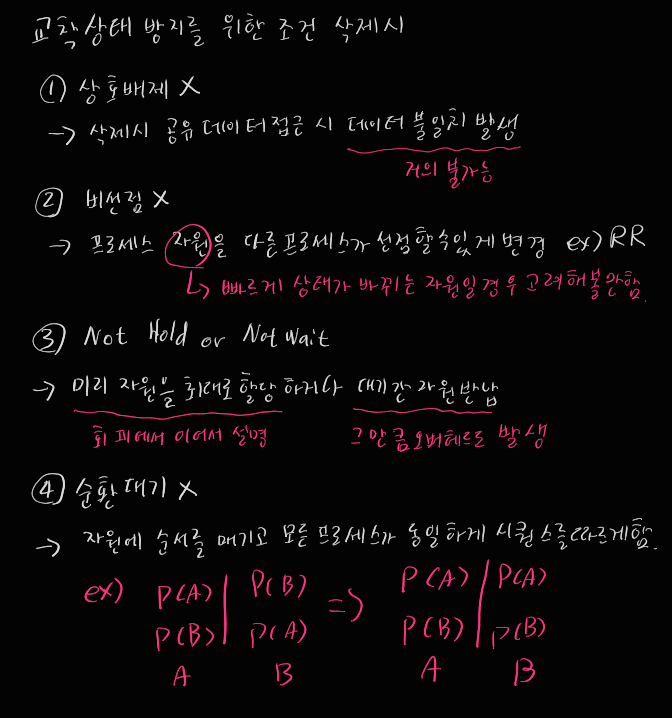 교착상태 방지를 위한 조건 삭제시
① 상호배제 X
→ 삭제시 공유 데이터접근 시 데이터 불일치 발생
거의 불가능
② 비선점 X
→ 프로세스 자원을 다른프로세스가 선점할수있게 변경 ex) RR
↳ 빠르게 상태가 바뀌는 자원일경우 고려해볼만함.
③ Not Hold or Not wait
→ 미리 자원을 최대로 할당 하거나 대기간 자원반납
회피에서 이어서 설명 그만큼오버헤드도 발생
④ 순환대기 X
→ 자원에 순서를 매기고 모든 프로세스가 동일하게 시퀀스를따르게함.
ex) P(A) | P(B) => P(A) | P(A)
P(B) | P(A) P(B) | P(B)
A B A B